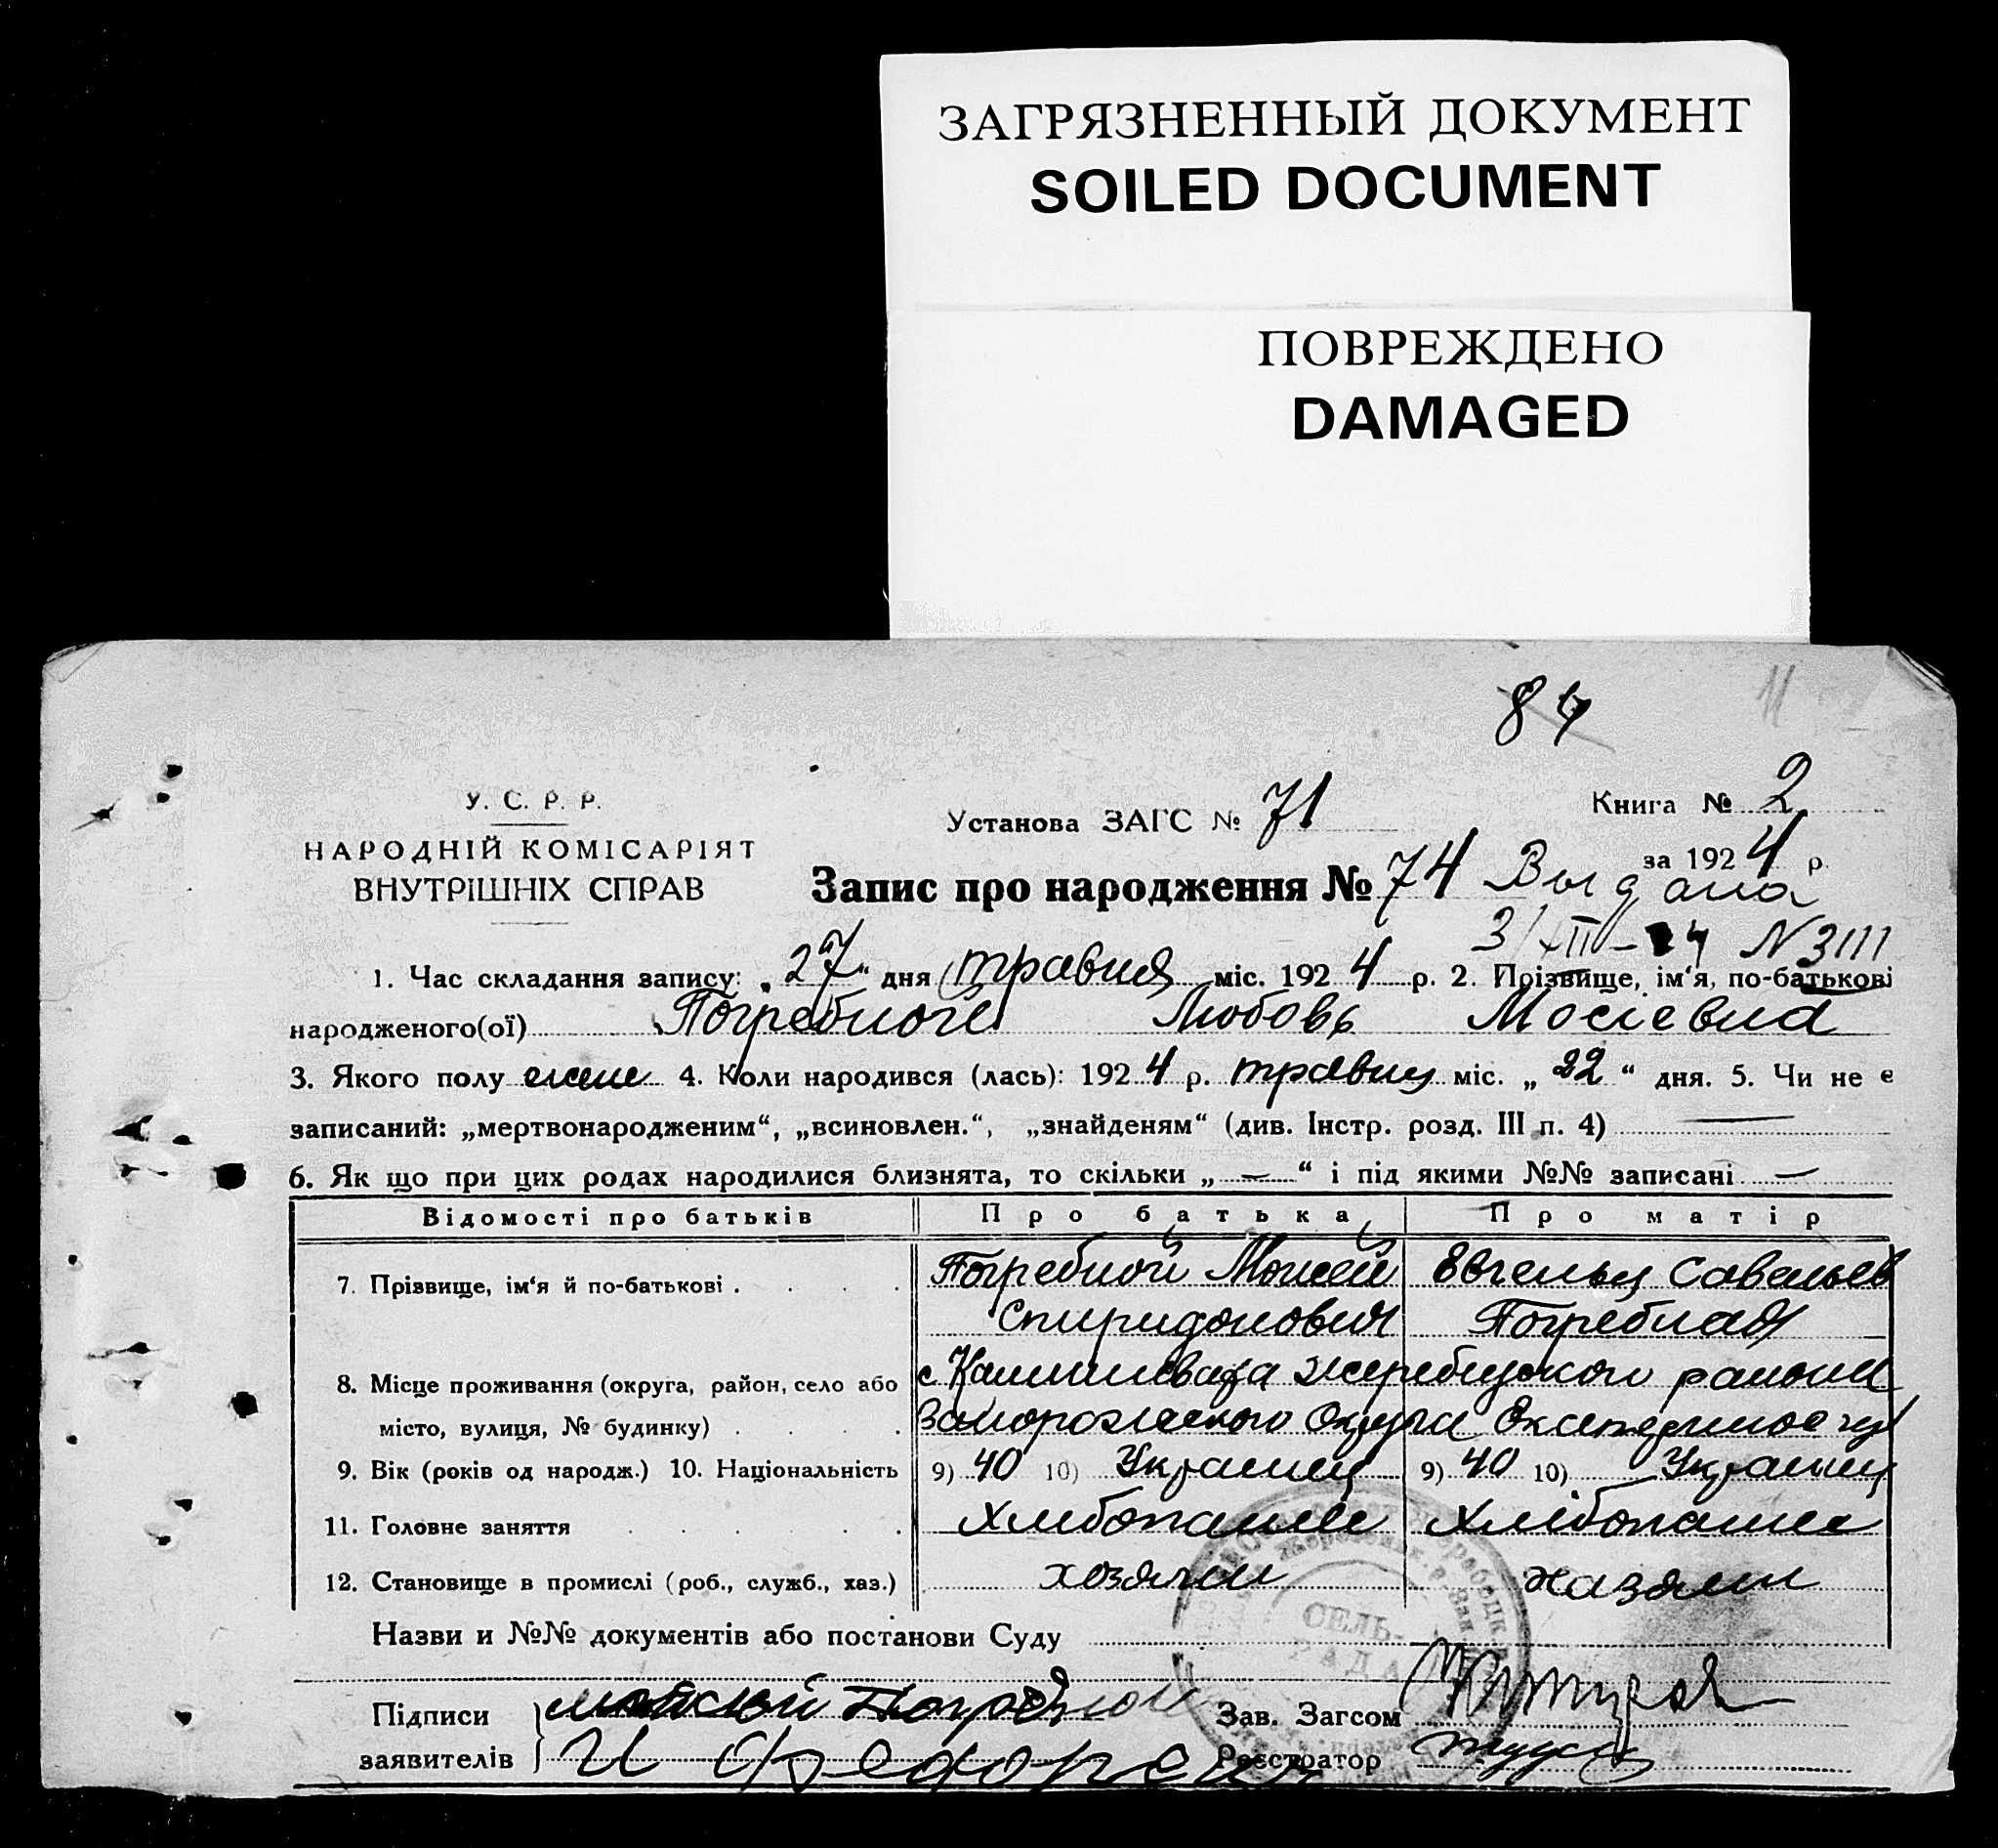 ЗАГРЯЗНЕННЫЙ ДОКУМЕНТ
SOILED DOCUMENT
ПОВРЕЖДЕНО
DAMAGED
84
11
У. С. Р. Р.
НАРОДНІЙ КОМІСАРІЯТ
ВНУТРІШНІХ СПРАВ
Установа ЗАГС № 71
Книга № 2
за 1924 р.
Запис про народження № 74 Выдана
3/XII-24 N3111
1. Час складання запису: „27“ дня травня міс. 1924 р. 2. Прізвище, ім‘я, по-батькові
народженого(ої) Погребной Любовь Мосієвна
3. Якого полу жен 4. Коли народився (лась): 1924 р. травня міс. „22“ дня. 5. Чи не є
записаний: „мертвонародженим“, „всиновлен.“, „знайденям“ (див. Інстр. розд. III п. 4) —
6. Як що при цих родах народилися близнята, то скільки „—“ і під якими №№ записані —
Відомості про батьків Про батька Про матір
7. Прізвище, ім‘я й по-батькові . Погребной Моисей Савельев
Спиридонович Погребная
8. Місце проживання (округа, район, село або с района
місто, вулиця, № будинку) . Запорожского Округи
9. Вік (років од народж.) 10. Національність 9) 40 10) Украинц 9) 40 10) Украинц
11. Головне заняття Хлибопашец Хлібопашец
12. Становище в промислі (роб., служб., хаз.) хозяин хазяин
Назви и №№ документів або постанови Суду
СЕЛЬ-
РАДА
Підписи Погребной Зав. Загсом
заявителів И Реєстратор